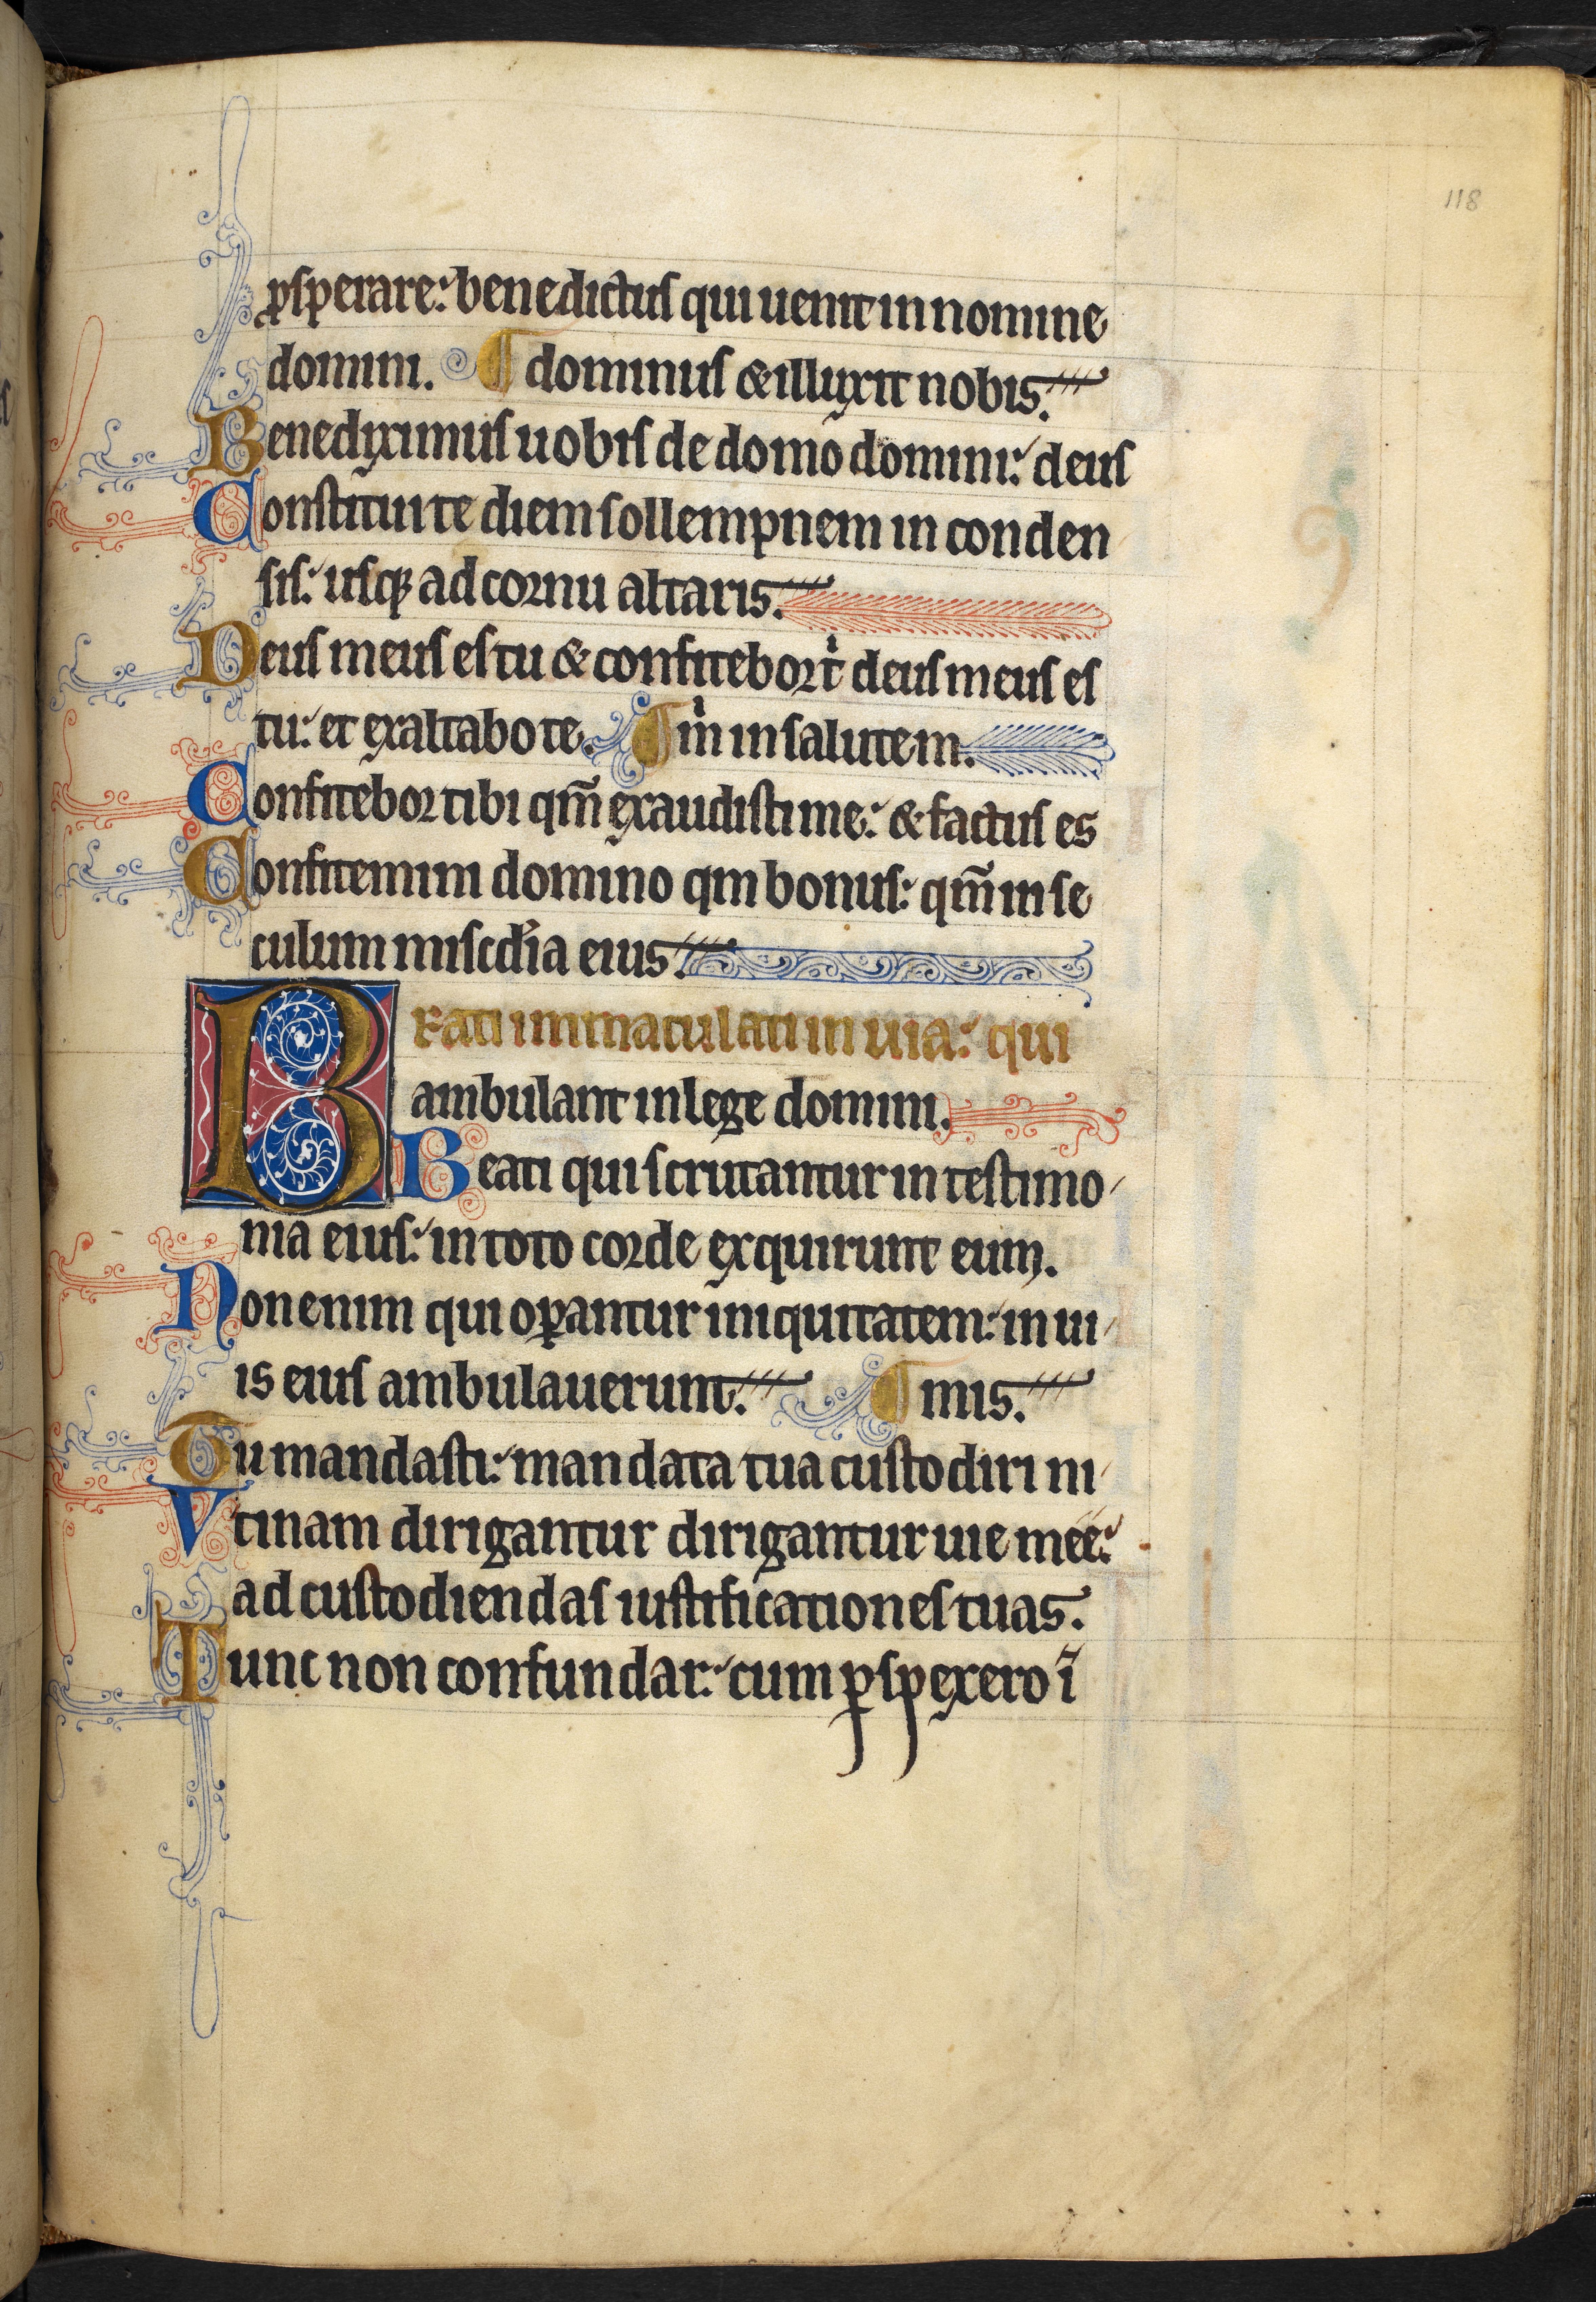 118
ꝓsꝑerare: benedictus qui uenit in nomine
domini. ¶ dominus & illuxit nobis.
Benediximus uobis de domo domini: deus
Constituite diem sollempnem in conden
sis: usqꝫ ad cornu altaris.
Deus meus es tu & confitebor tͥ deus meus es
tu: et exaltabo te. ¶ mͥ in salutem.
Confitebor tibi qm̄ exaudisti me: & factus es
Confitemini domino qm bonus: qm̄ in se
culum misc̄dia eius.
BEati immaculati in uia: qui
ambulant in lege domini.
Beati qui scrutantur in testimo
nia eius: in toto corde exquirunt eum.
Non enim qui oꝑantur iniquitatem: in ui
is eius ambulauerunt. ¶ mis.
Tu mandasti: mandata tua custodiri ni
Vtinam dirigantur dirigantur uie mee:
ad custodiendas iustificationes tuas.
Tunc non confundar: cum ꝑspexero ī